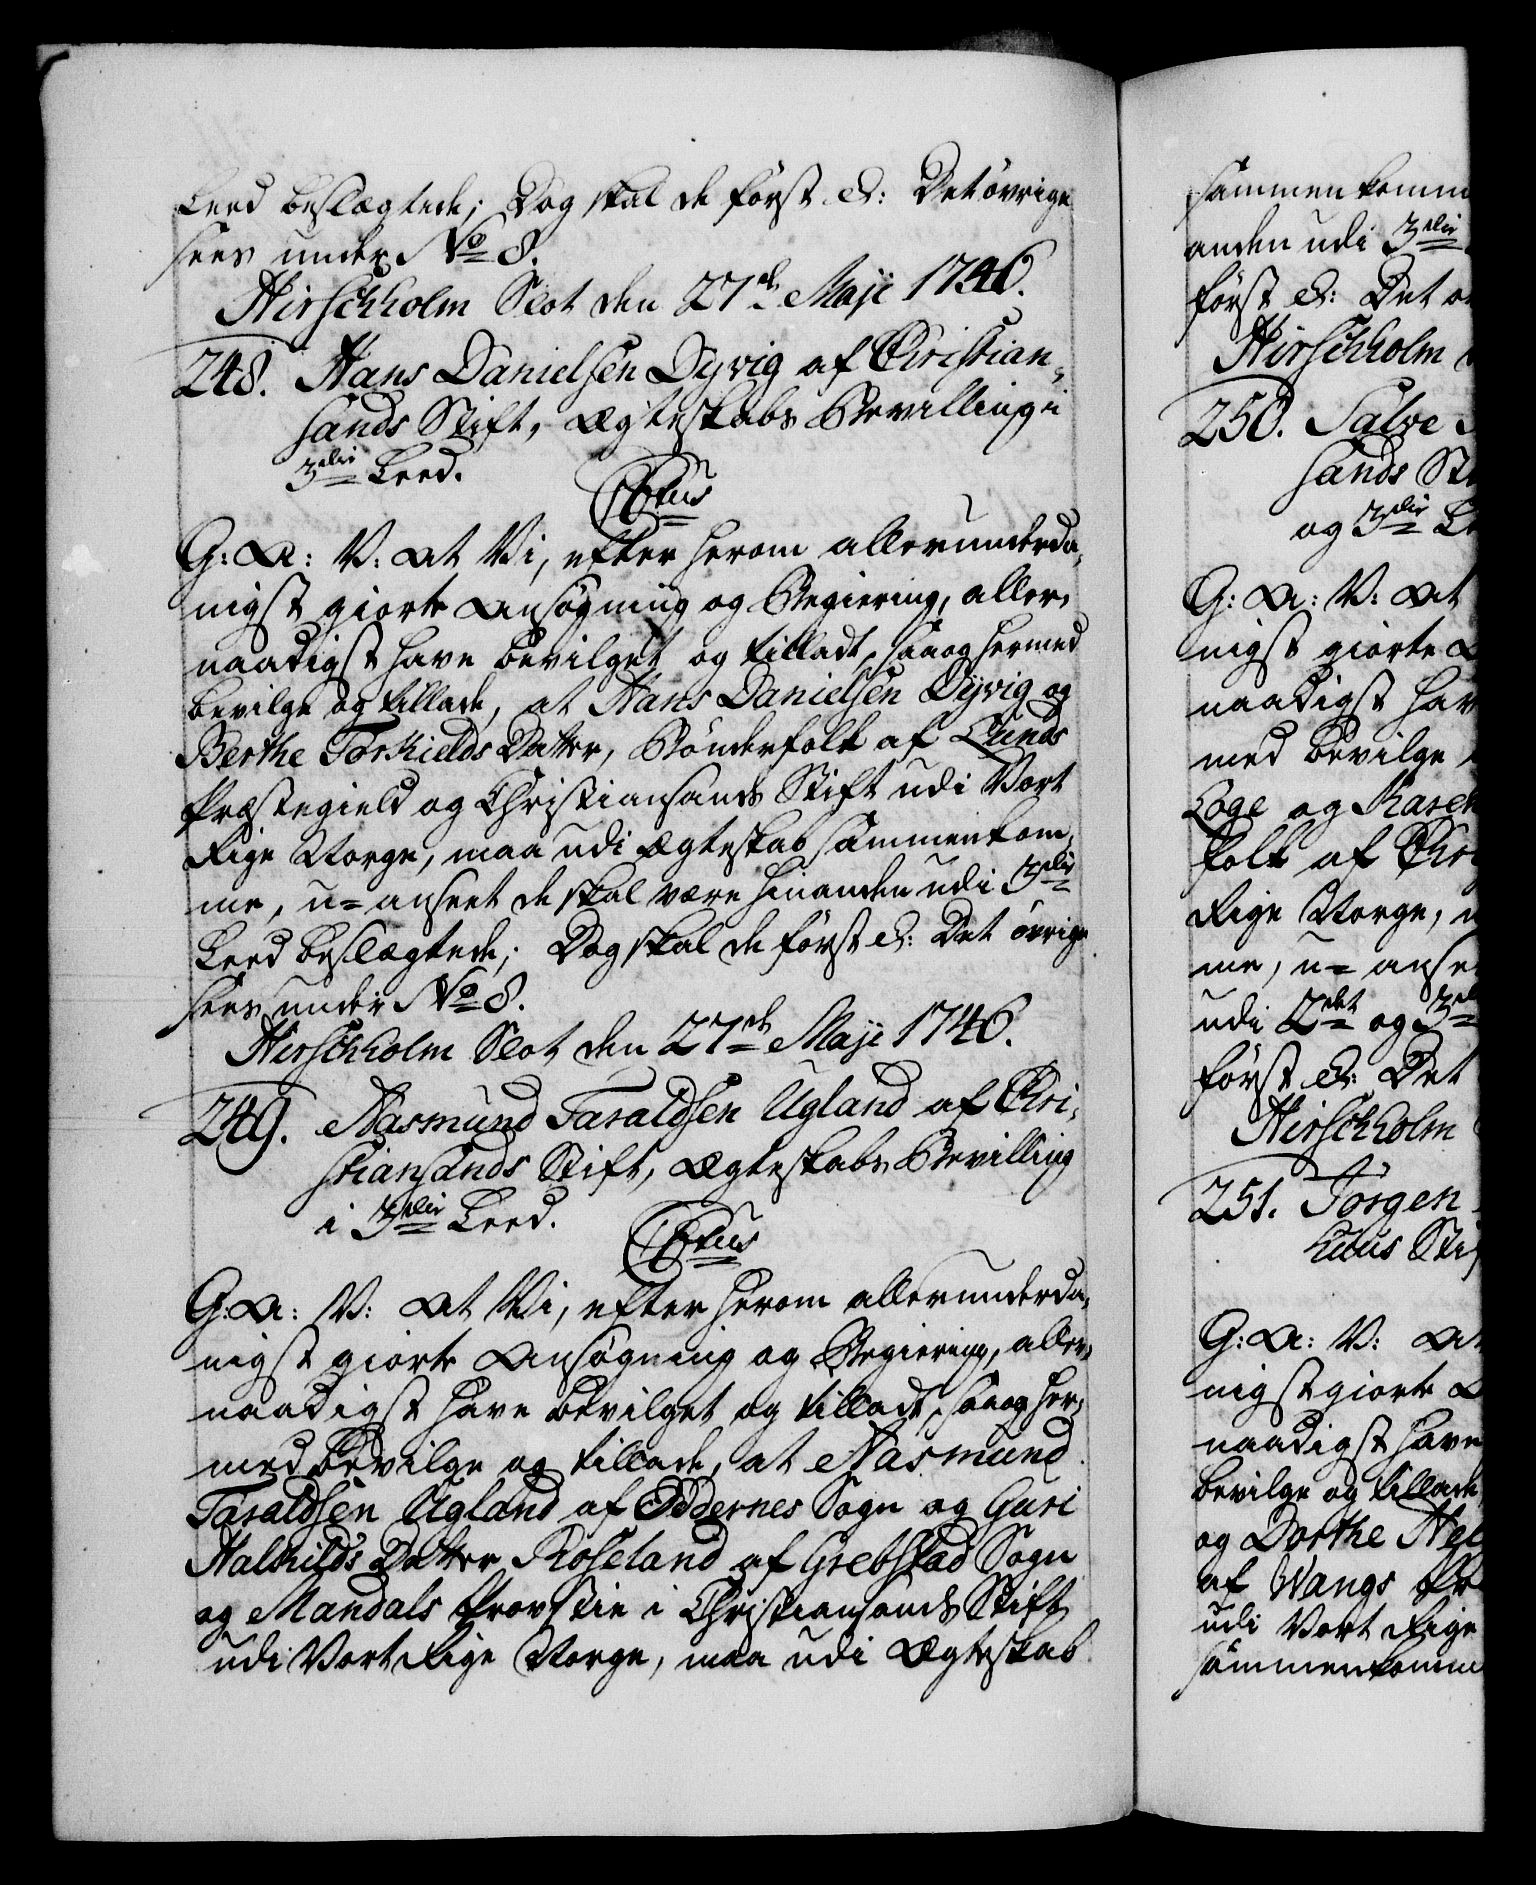 Leed beslægtede; Dog skal de först &: Det övrige
sees under No 8.
Hirschholm Slot den 27de Maji 1746.
248. Hans Danielsen Dyvig af Christian-
sands Stift, Ægteskabs Bevilling i
3die Leed.
C6tus
G: A: V: At Vi, efter herom allerunderda-
nigst giorte Ansøgning og Begiering, aller-
naadigst have bevilget og tilladt, saa og hermed
bevilge og tillade, at Hans Danielsen Dyvig og
Berthe Torkields Datter, Bönderfolk af Lunds
Præstegield og Christiansands Stift udi Vort
Rige Norge, maa udi Ægteskab sammenkom-
me, u= anseet de skal være hinanden udi 3die
Leed beslægtede; Dog skal de först &: Det övrige
sees under No 8.
Hirschholm Slot den 27de Maji 1746.
249. Aasmund Taraldsen Ugland af Chri-
stiansands Stift, Ægteskabs Bevilling
i 3die Leed.
C6tus
G: A: V: At Vi, efter herom allerunderda-
nigst giorte Ansøgning og Begiering, aller-
naadigst have bevilget og tilladt, saa og her-
med bevilge og tillade, at Aasmund
Taraldsen Ugland af Oddernes Sogn og Guri
Halkilds Datter Roseland af Grebstad Sogn
og Mandals Provstie i Christiansands Stift
udi Vort Rige Norge, maa udi Ægteskab
sammenkomm
anden udi 3die
först &: Det
Hirschholm
250. Salve
sands St
og 3die Le
G: A: V: At
nigst giorte A
naadigst hav
med bevilge
Loge og Karen
folk af Chri
Rige Norge,
me, u= ansee
udi 2det og 3di
först &: Det
Hirschholm
251. Jörgen
huus Stif
G: A: V: At
nigst giorte A
naadigst have
bevilge og tillade
og Dorthe Nel
af Wangs Pr
udi Vort Rige
sammenkomm